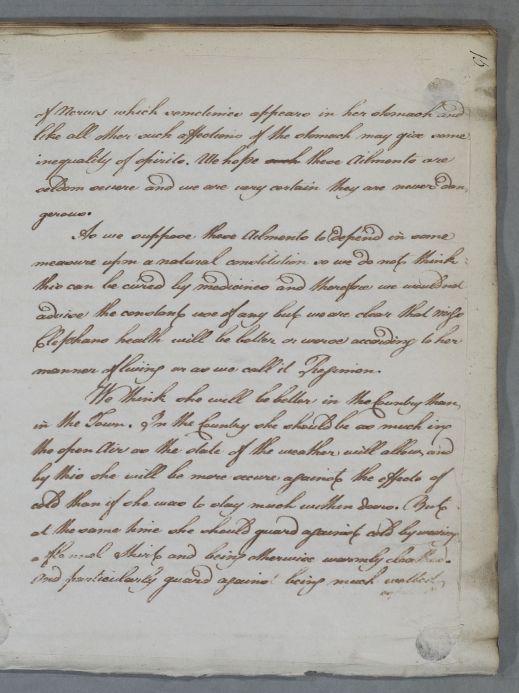 15
of Nerves which sometimes appears in her stomach and
like all other such affections of the stomach may give some
inequality of spirits. We hope such these Ailments are
seldom severe and we are very certain they are never dan,
gerous.
As we suppose these Ailments to depend in some
measure upon a natural constitution so we do not think
this can be cured by medicines and therefore we would not
advise the constant use of any but we are clear that Miss
Elsphans health will be better or worse according to her
manner of living or as we call it Regimen.
We think she will be better in the Country than
in the Town. In the Country she should be as much in
the open Air as the state of the weather will allow and
by this she will be more secure against the effects of
cold than if she was to stay much within doors. But
at the same time she should guard against cold by wearing
a flannel Shirt and being otherwise warmly cloathed.
And particularly guard against being much